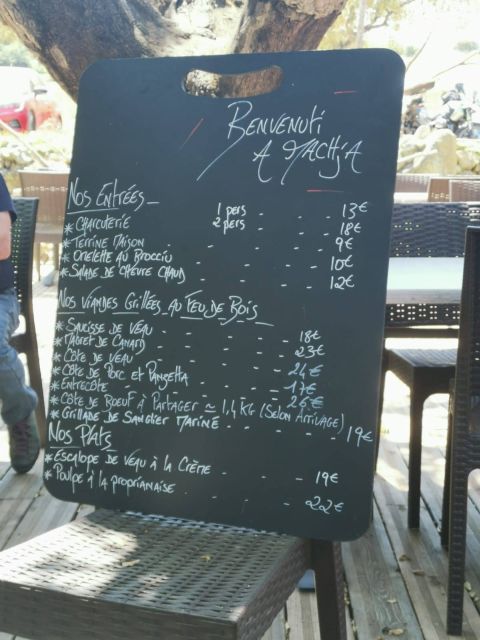 Benvenuti
A Machja
Nos Entrées
* Charcuterie 1 pers - - - 13€
2 pers - - - 18€
* Terrine Maison - - - - 9€
* Omelette au Brocciu - - - - 10€
* Salade de chèvre chaud - - - - 12€
Nos Viandes Grillées au Feu de Bois
* Saucisse de veau - - - - 18€
* Magret de Canard - - - - 23€
* Côte de veau - - - - 24€
* Côte de Porc et Panzetta - - - - 17€
* Entrecôte - - - - 26€
* Côte de Boeuf à Partager ≃ 1,4 kg (Selon Arrivage)
* Grillade de Sanglier Mariné - - - - 19€
Nos Plats
* Escalope de Veau à la Crème - - - 19€
* Poulpe à la proprianaise - - - 22€